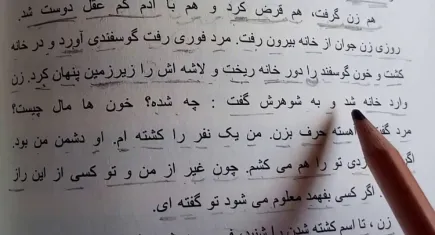 هم زن گرفت، هم قرض کرد و هم با آدم کم عقل دوست شد.
روزی زن جوان از خانه بیرون رفت. مرد فوری رفت گوسفندی آورد و در خانه
کشت و خون گوسفند را دور خانه ریخت و لاشه اش را زیرزمین پنهان کرد. زن
وارد خانه شد و به شوهرش گفت : چه شده؟ خون ها مال چیست؟
مرد هسته حرف بزن. من یک نفر را کشته ام. او دشمن من بود.
ردی تو را هم می کشم. چون غیر از من و تو کسی از این راز
. اگر کسی بفهمد معلوم می شود تو گفته ای.
زن ، تا اسم کشته شدن را شنید،